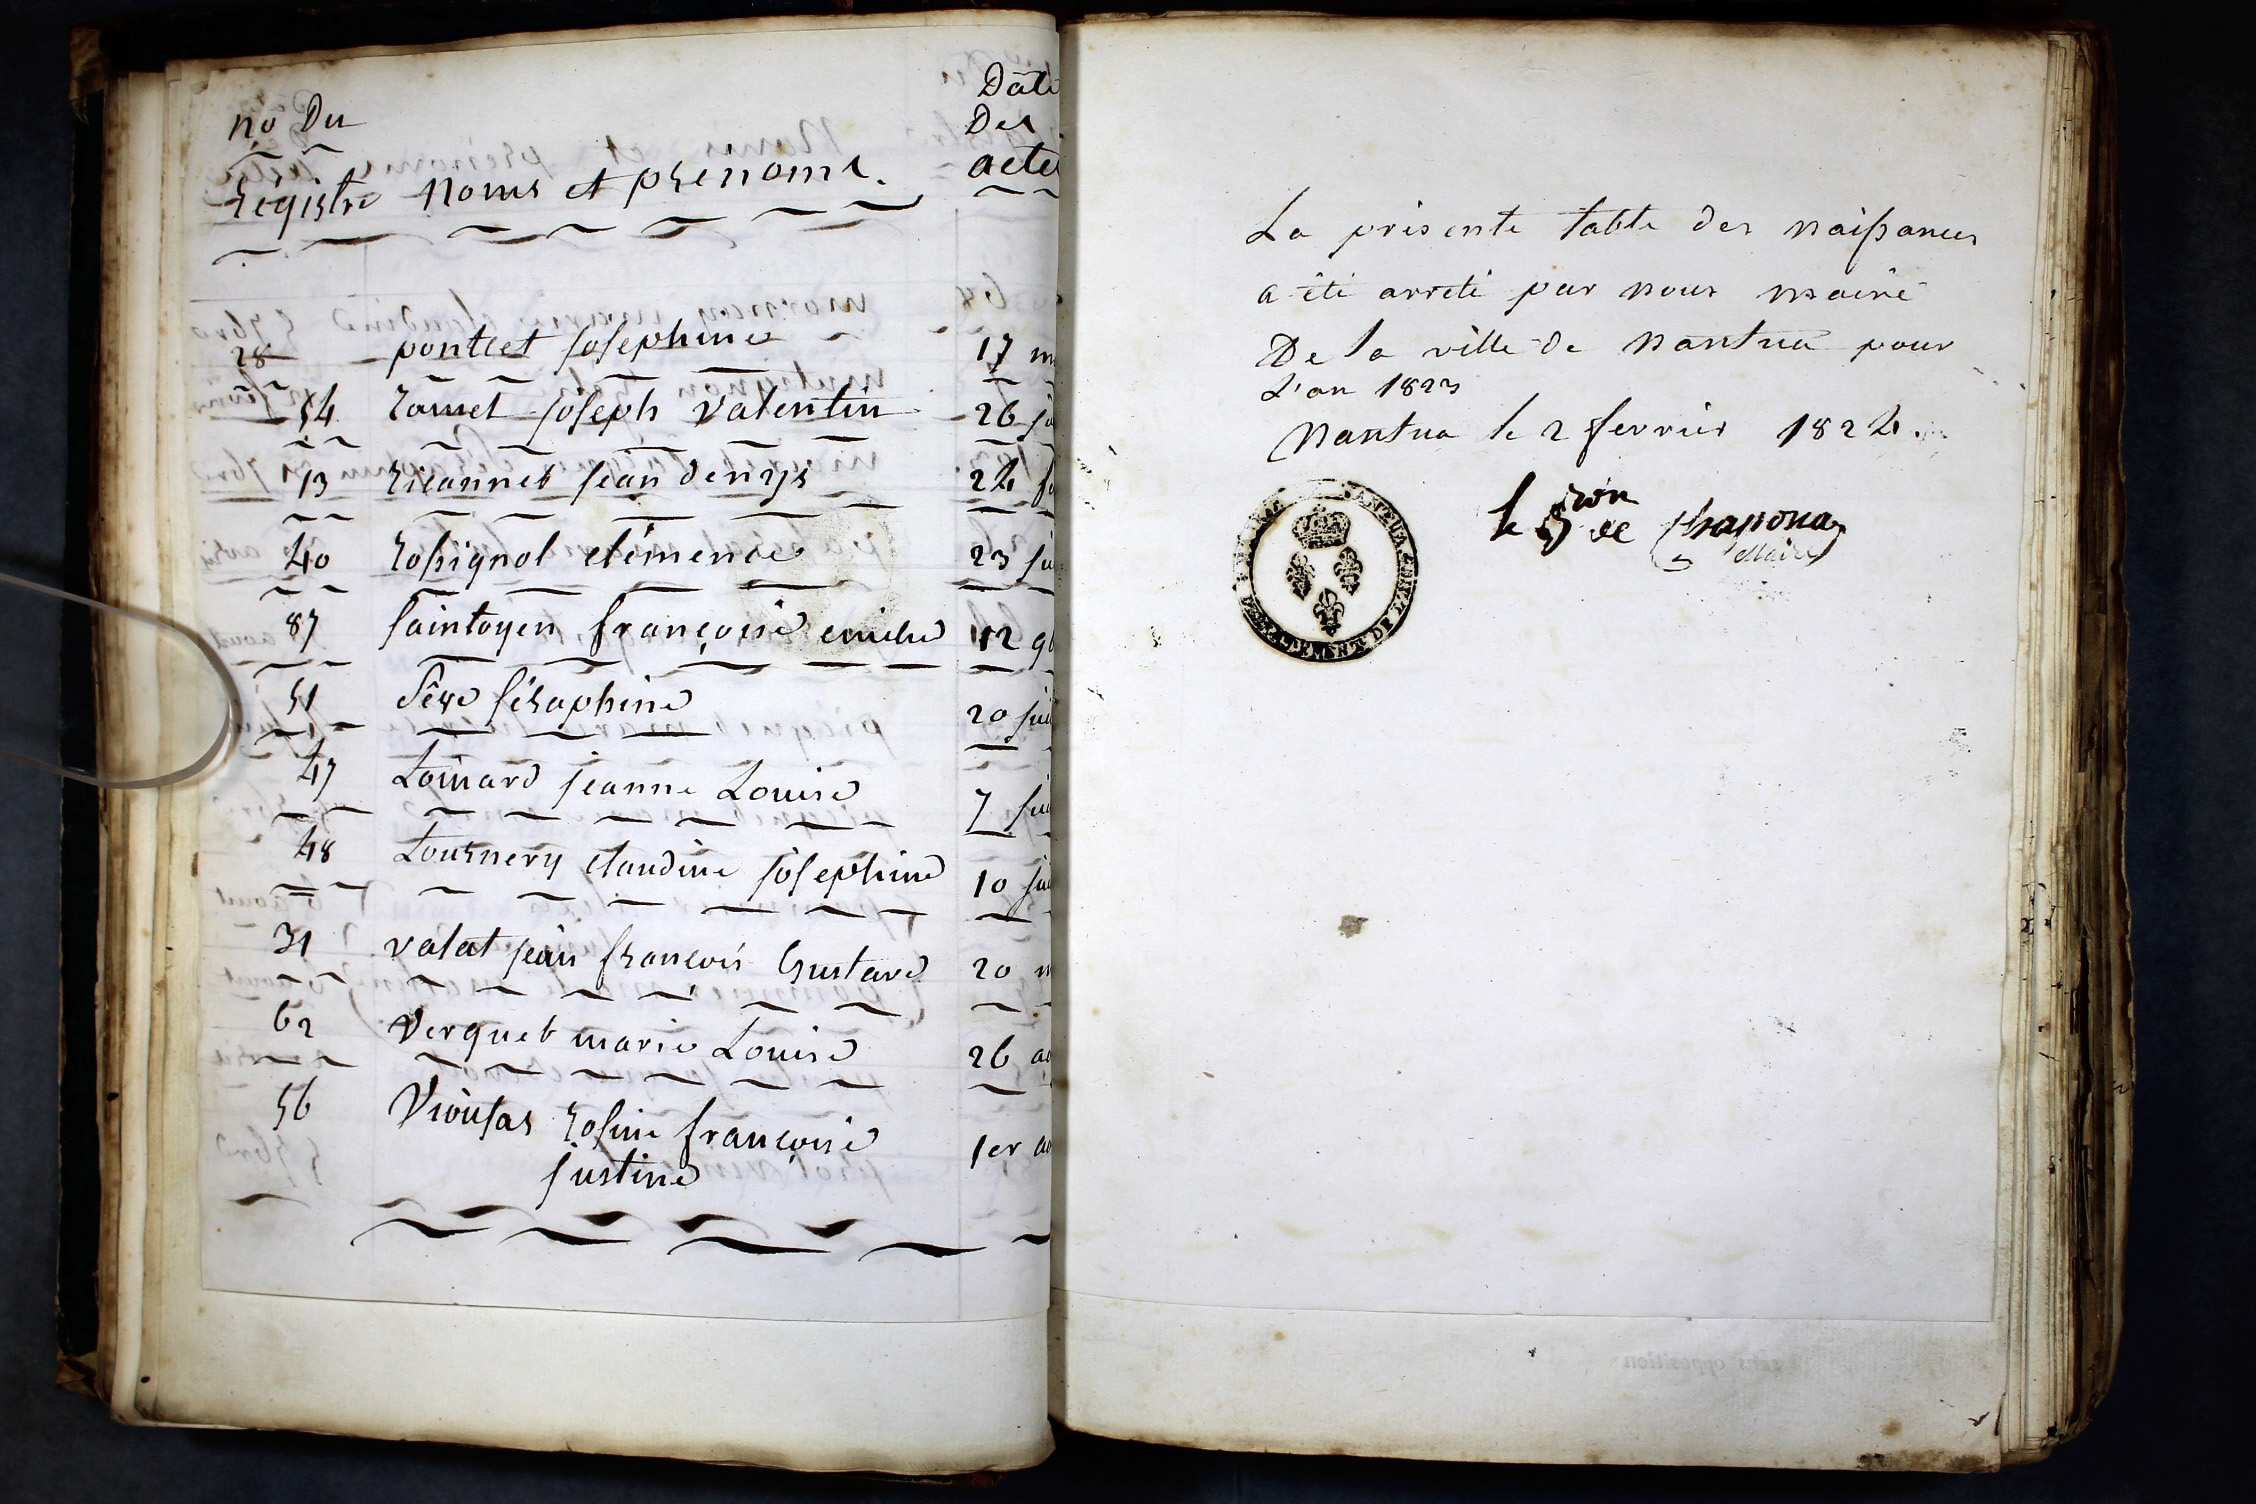 no Du
Date
Des
Registre noms et prénoms.
actes
28 pontcet Josephine 17 m
54 Ramel Joseph Valentin 26 ju
13 Ricannet Jean denys 24 f
40 Rossignol clémence 23 ju
87 Saintoyen françoise emilie 12 9b
51 Sève Séraphine 20 jui
47 Toinard jeanne Louise 7 jui
48 Tournery claudine joséphine 10 jui
31 valat jean françois Gustave 20 m
62 Verguet marie Louise 26 ao
56 Viousas Rosine françoise 1er ao
justine
La présente table des naissances
a été arreté par nous maire
De la ville de Nantua pour
L'an 1823
Nantua le 2 fevrier 1824.
le Bon de
Maire